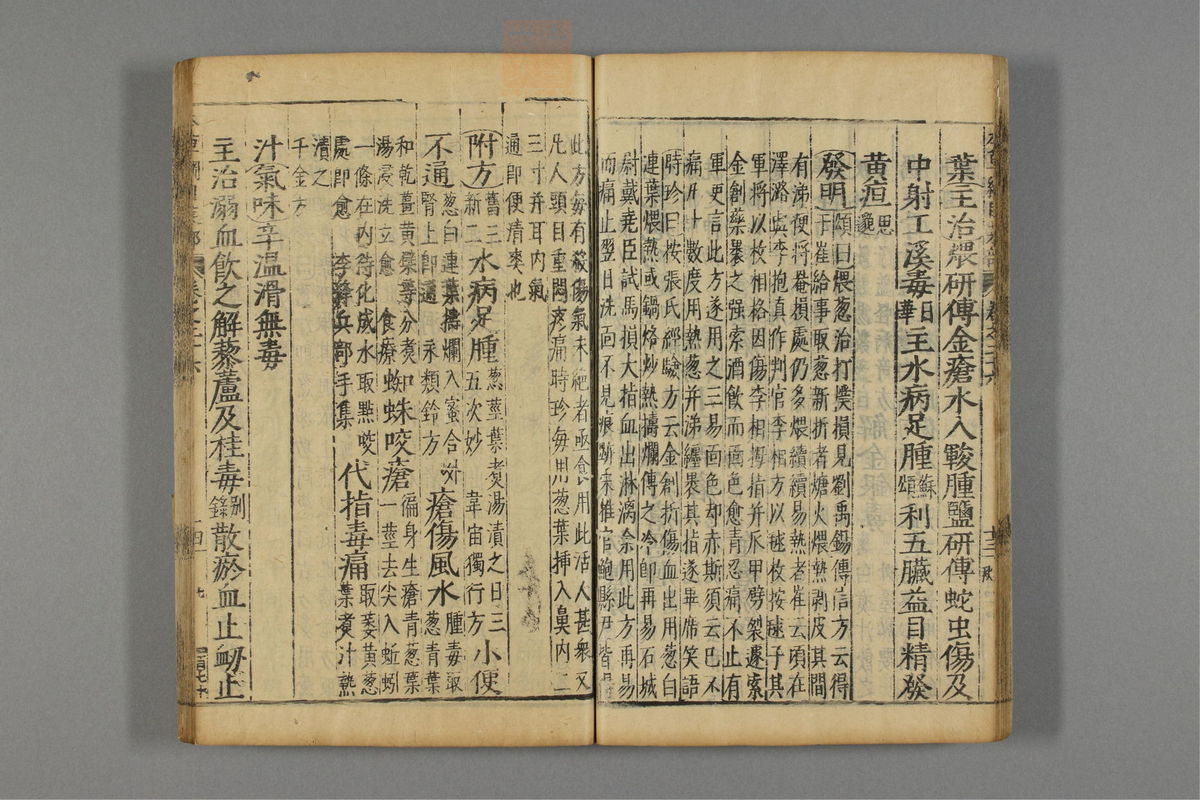 葉主治煨研傅金瘡水入皸腫鹽研傅蛇虫傷及
中射工溪毒日華主水病足腫蘇頌利五臟益目精發
黃疸思邈
發明頌曰煨葱治打撲損見劉禹錫傳信方云得
于崔給事取葱新折者煻火煨熱剥皮其間
有涕便將罨損處仍多煨續續易熱者崔云頃在
澤潞與李抱真作判官李相方以毬杖按毬子其
軍將以杖相格因傷李相拇指并爪甲劈裂遽索
金創藥裹之强索酒飲而面色愈青忍痛不止有
軍吏言此方遂用之三易面色却赤斯須云已不
痛凡十數度用熱葱并涕纏裹其指遂畢席笑語
時珍曰按張氏經驗方云金創折傷血出用葱白
連葉煨熱或鍋烙炒熱擣爛傅之冷即再易石城
尉戴堯臣試馬損大指血出淋漓余用此方再易
而痛止翌日洗面不見痕跡宋推官鮑縣尹皆得
此方每有殺傷氣未絶者亟食用此活人甚衆又
凡人頭目重悶疼痛時珍每用葱葉插入鼻内二
三寸并耳内氣
通即便清爽也
附方舊三新二水病足腫葱莖葉煑湯漬之日三
五次妙 韋宙獨行方小便
不通葱白連葉擣爛入蜜合外
腎上即通 永類鈴方瘡傷風水腫毒取
葱青葉
和乾薑黄蘗等分煑
湯浸洗立愈 食療蜘蛛咬瘡徧身生瘡青葱葉
一莖去尖入蚯蚓
一條在内待化成水取點咬
處即愈 李絳兵部手集代指毒痛取萎黃葱
葉煑汁熱
漬之
千金方
汁氣味辛温滑無毒
主治溺血飲之解藜蘆及桂毒别錄散瘀血止衂止